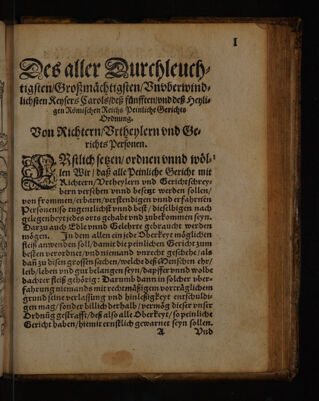 I
Des aller Durchleuch-
tigsten/Großmächtigsten/Vnvberwind-
lichsten Keysers Carols/deß fünfften/vnd deß Heyli-
gen Römischen Reichs Peinliche Gerichts
Ordnung.
Von Richtern/Vrtheylern vnd Ge-
richts Personen.
ERstlich setzen/ordnen vnnd wöl-
len Wir/daß alle Peinliche Gericht mit
Richtern/Vrtheylern vnd Gerichtschrey-
bern versehen vnnd besetzt werden sollen/
von frommen/erbarn/verstendigen vnnd erfahrnen
Personen/so tugentlichst vnnd best/dieselbigen nach
gelegenheyt jedes orts gehabt vnd zubekommen seyn.
Darzu auch Edle vnd Gelehrte gebraucht werden
mögen. In dem allen ein jede Oberkeyt möglichen
fleiß anwenden soll/damit die peinlichen Gericht zum
besten verordnet/vnd niemand vnrecht geschehe/als
dañ zu disen grossen sachen/welche deß Menschen ehr/
leib/leben vnd gut belangen seyn/dapffer vnnd wolbe
dachter fleiß gehörig: Darumb dann in solcher vber-
fahrung niemands mit rechtmässigem vorträglichem
grund seine verlassung vnd hinleßigkeyt entschuldi-
gen mag/sonder billich derhalb/vermög dieser vnser
Ordnūg gestrafft/deß also alle Oberkeyt/so peinliche
Gericht haben/hiemit ernstlich gewarnet seyn sollen.
A Vnd